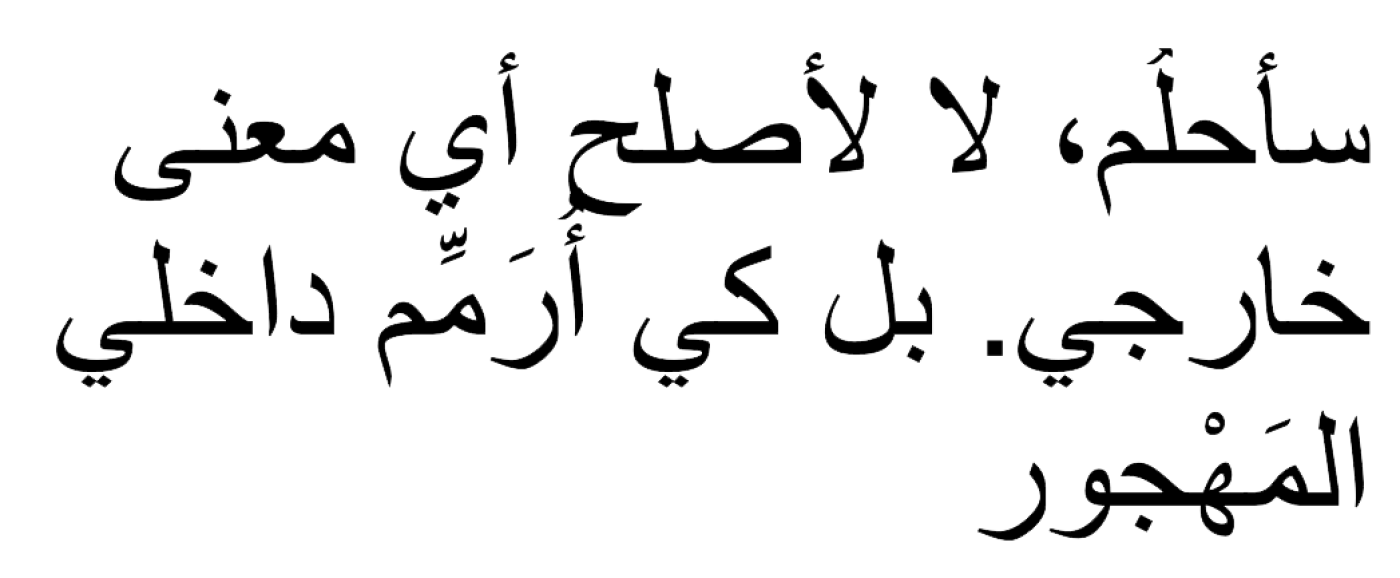 سأحلُم، لا لأصلح أي معنى
خارجي. بل كي أُرَمِّم داخلي
المَهْجور